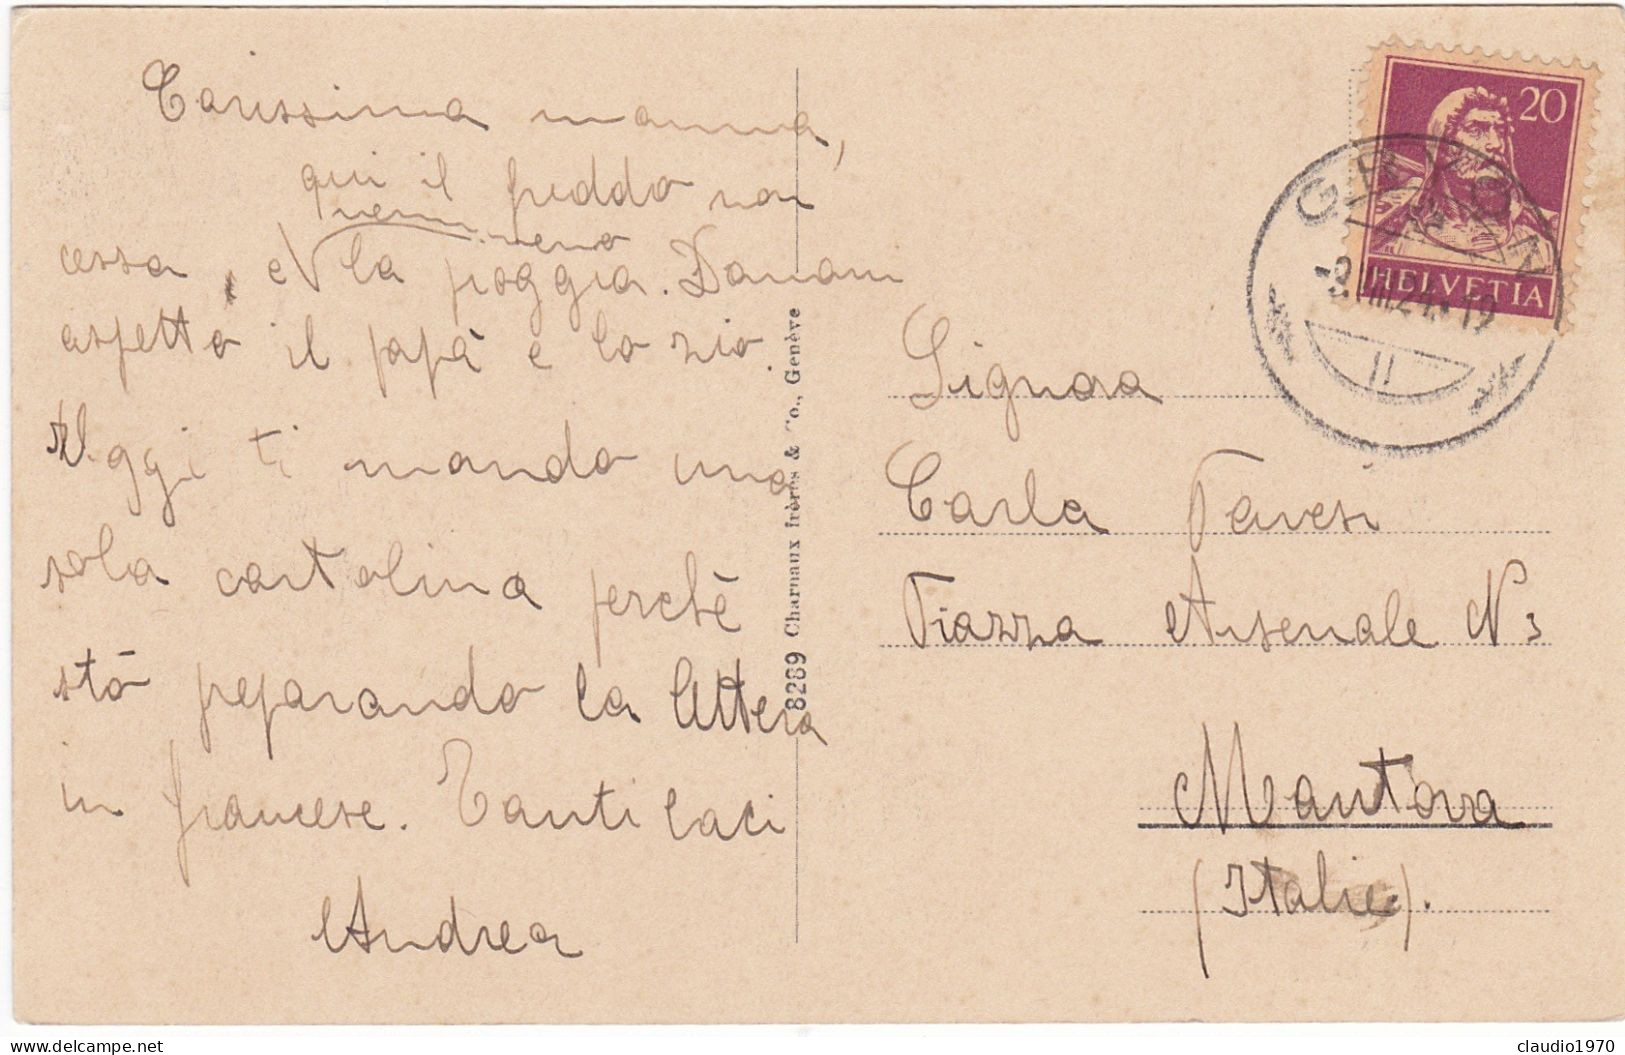 Carissima mamma,
qui il freddo non
nemmeno
cessa, e la pioggia. Domani
aspetto il papà e lo zio.
Oggi ti mando una
sola cartolina perchè
stò preparando la lettera
in francese. Tanti baci
Andrea
8289 Charnaux frères & Co., Genève
20
HELVETIA
GRYON
Signora
Carla Pavesi
Piazza Arsenale N 3
Mantova
(Italie).
claudio1970